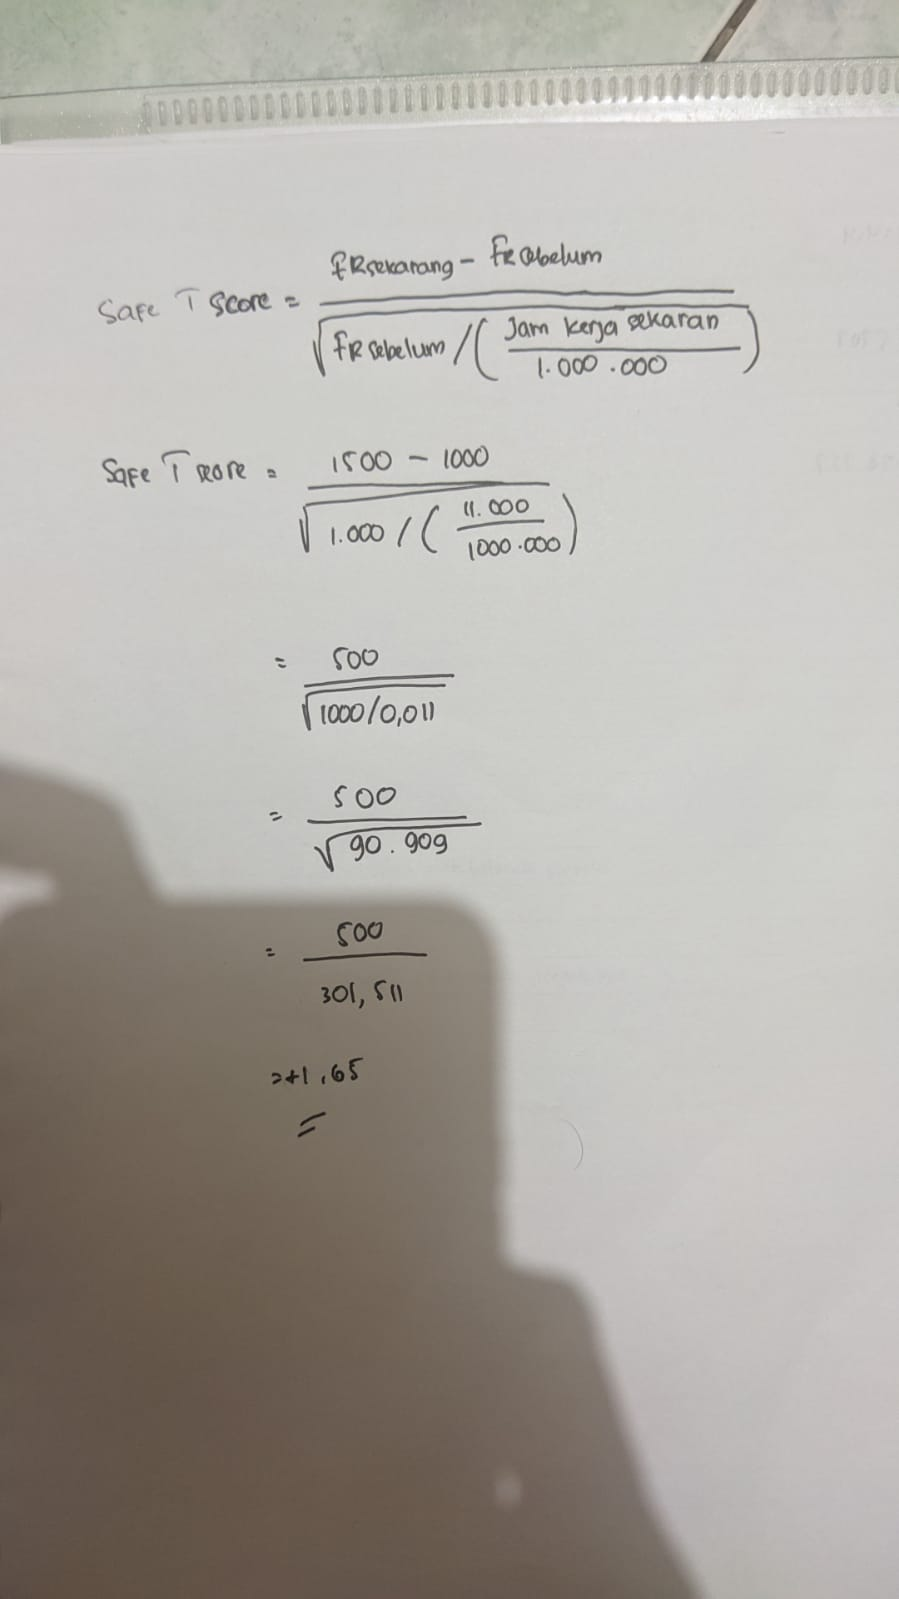 Safe T Score = FRsekarang - FR sbelum
√ FR sebelum / ( Jam kerja sekaran / 1.000.000 )
Safe T score = 1500 - 1000
√ 1.000 / ( 11.000 / 1000.000 )
= 500
√ 1000/0,011
= 500
√ 90.909
= 500
301,511
= +1,65